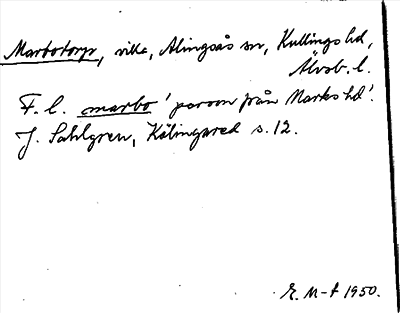 Marbotorp, villa, Alingsås sn, Kullings hd,
Älvsb. l.
F. l. marbo 'person från Marks hd'.
J. Sahlgren, Kölingared s. 12.
E. M-t 1950.